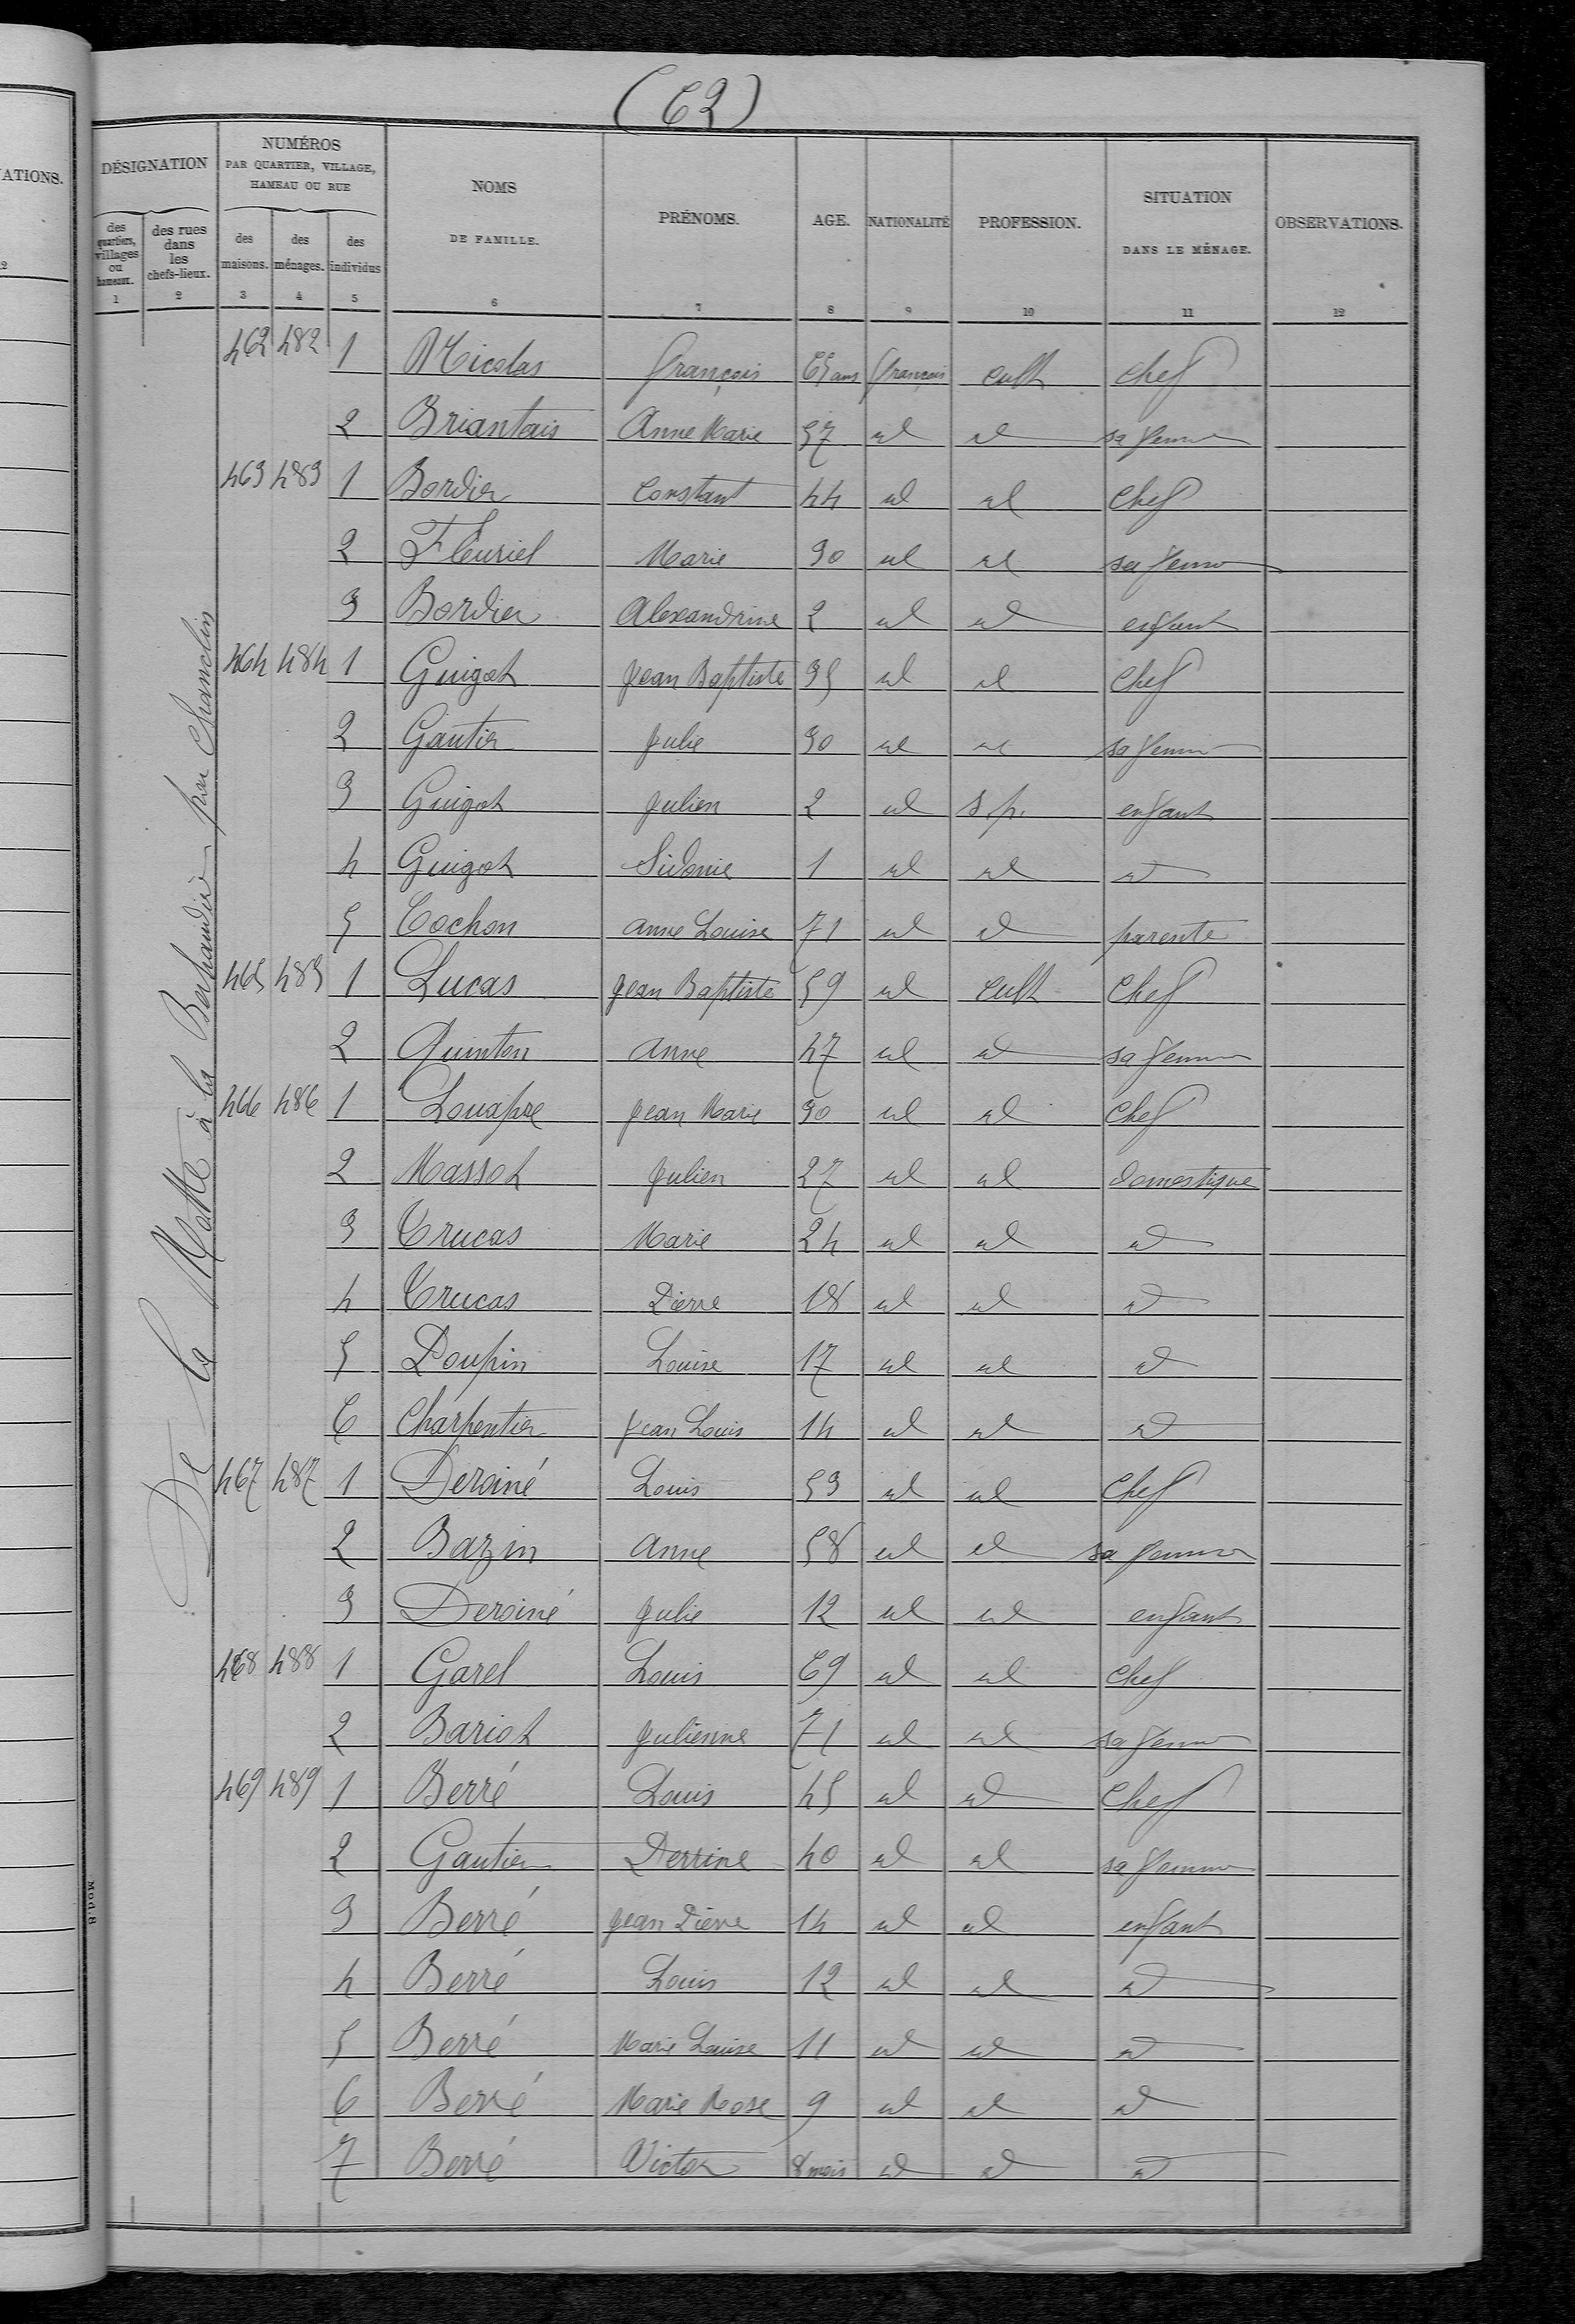 (62)
ATIONS.
DÉSIGNATION
NUMÉROS PAR QUARTIER, VILLAGE, HAMEAU OU RUE
NOMS DE FAMILLE.
PRÉNOMS.
AGE.
NATIONALITÉ
PROFESSION.
SITUATION DANS LE MÉNAGE.
OBSERVATIONS.
des quartiers, villages ou hameaux.
des rues dans les chefs-lieux.
des maisons.
des ménages.
des individus
1 2 3 4 5 6 7 8 9 10 11 12
De la Motte à la par
462 482 1 Nicolas François 65 ans français cult chef
2 Briantais Anne Marie 57 id id sa femme
463 483 1 Bordier Constant 44 id id chef
2 Fleuriel Marie 30 id id sa femme
3 Bordier Alexandrine 2 id id enfant
464 484 1 Guigot Jean Baptiste 35 id id chef
2 Gautier Julie 30 id id sa femme
3 Guigot Julien 2 id s.p. enfant
4 Guigot Sidonie 1 id id id
5 Cochon Anne Louise 71 id id parente
465 485 1 Lucas Jean Baptiste 59 id cult chef
2 Quinton Anne 47 id id sa femme
466 486 1 Louapre Jean Marie 30 id id chef
2 Massot Julien 27 id id domestique
3 Trucas Marie 24 id id id
4 Trucas Pierre 18 id id id
5 Poupin Louise 17 id id id
6 Charpentier Jean Louis 14 id id id
467 487 1 Deroiné Louis 53 id id chef
2 Bazin Anne 58 id id sa femme
3 Deroiné Julie 12 id id enfant
468 488 1 Garel Louis 69 id id chef
2 Bariot Julienne 71 id id sa femme
469 489 1 Berré Louis 45 id id chef
2 Gautier Perrine 40 id id sa femme
3 Berré Jean Pierre 14 id id enfant
4 Berré Louis 12 id id id
5 Berré Marie Louise 11 id id id
6 Berré Marie Rose 9 id id id
7 Berré Victor 8 mois id id id
Mod. B